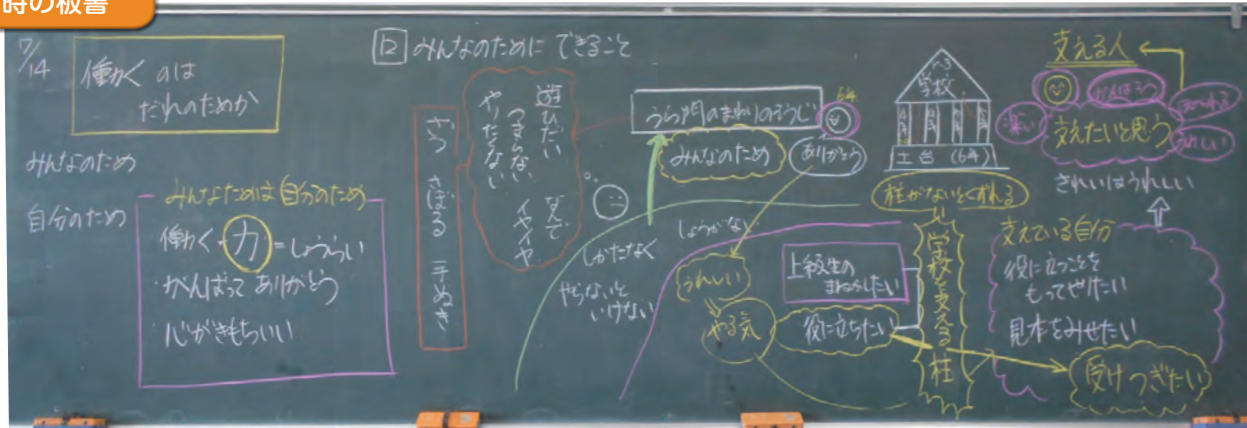 時の板書
7/14
働くのは
だれのためか
みんなのため
自分のため
みんなためは自分のため
働く力=しょうらい
・がんばって ありがとう
・心がきもちいい
12 みんなのために できること
ざつ さぼる 手ぬき
遊びたい なんで
つまらない イヤイヤ
やりたくない
うら門のまわりのそうじ
6年
みんなのため
ありがとう
しかたなく
しょうがない
やらないと
いけない
うれしい
やる気
上級生の
まねをしたい
役に立ちたい
学校
土台 (6年)
柱がないとくずれる
学校を支える柱
支える人
がんばろう
ほめられる
深い
支えたいと思う
うれしい
きれいはうれしい
支えている自分
役に立つことを
もってやりたい
見本をみせたい
受けつぎたい